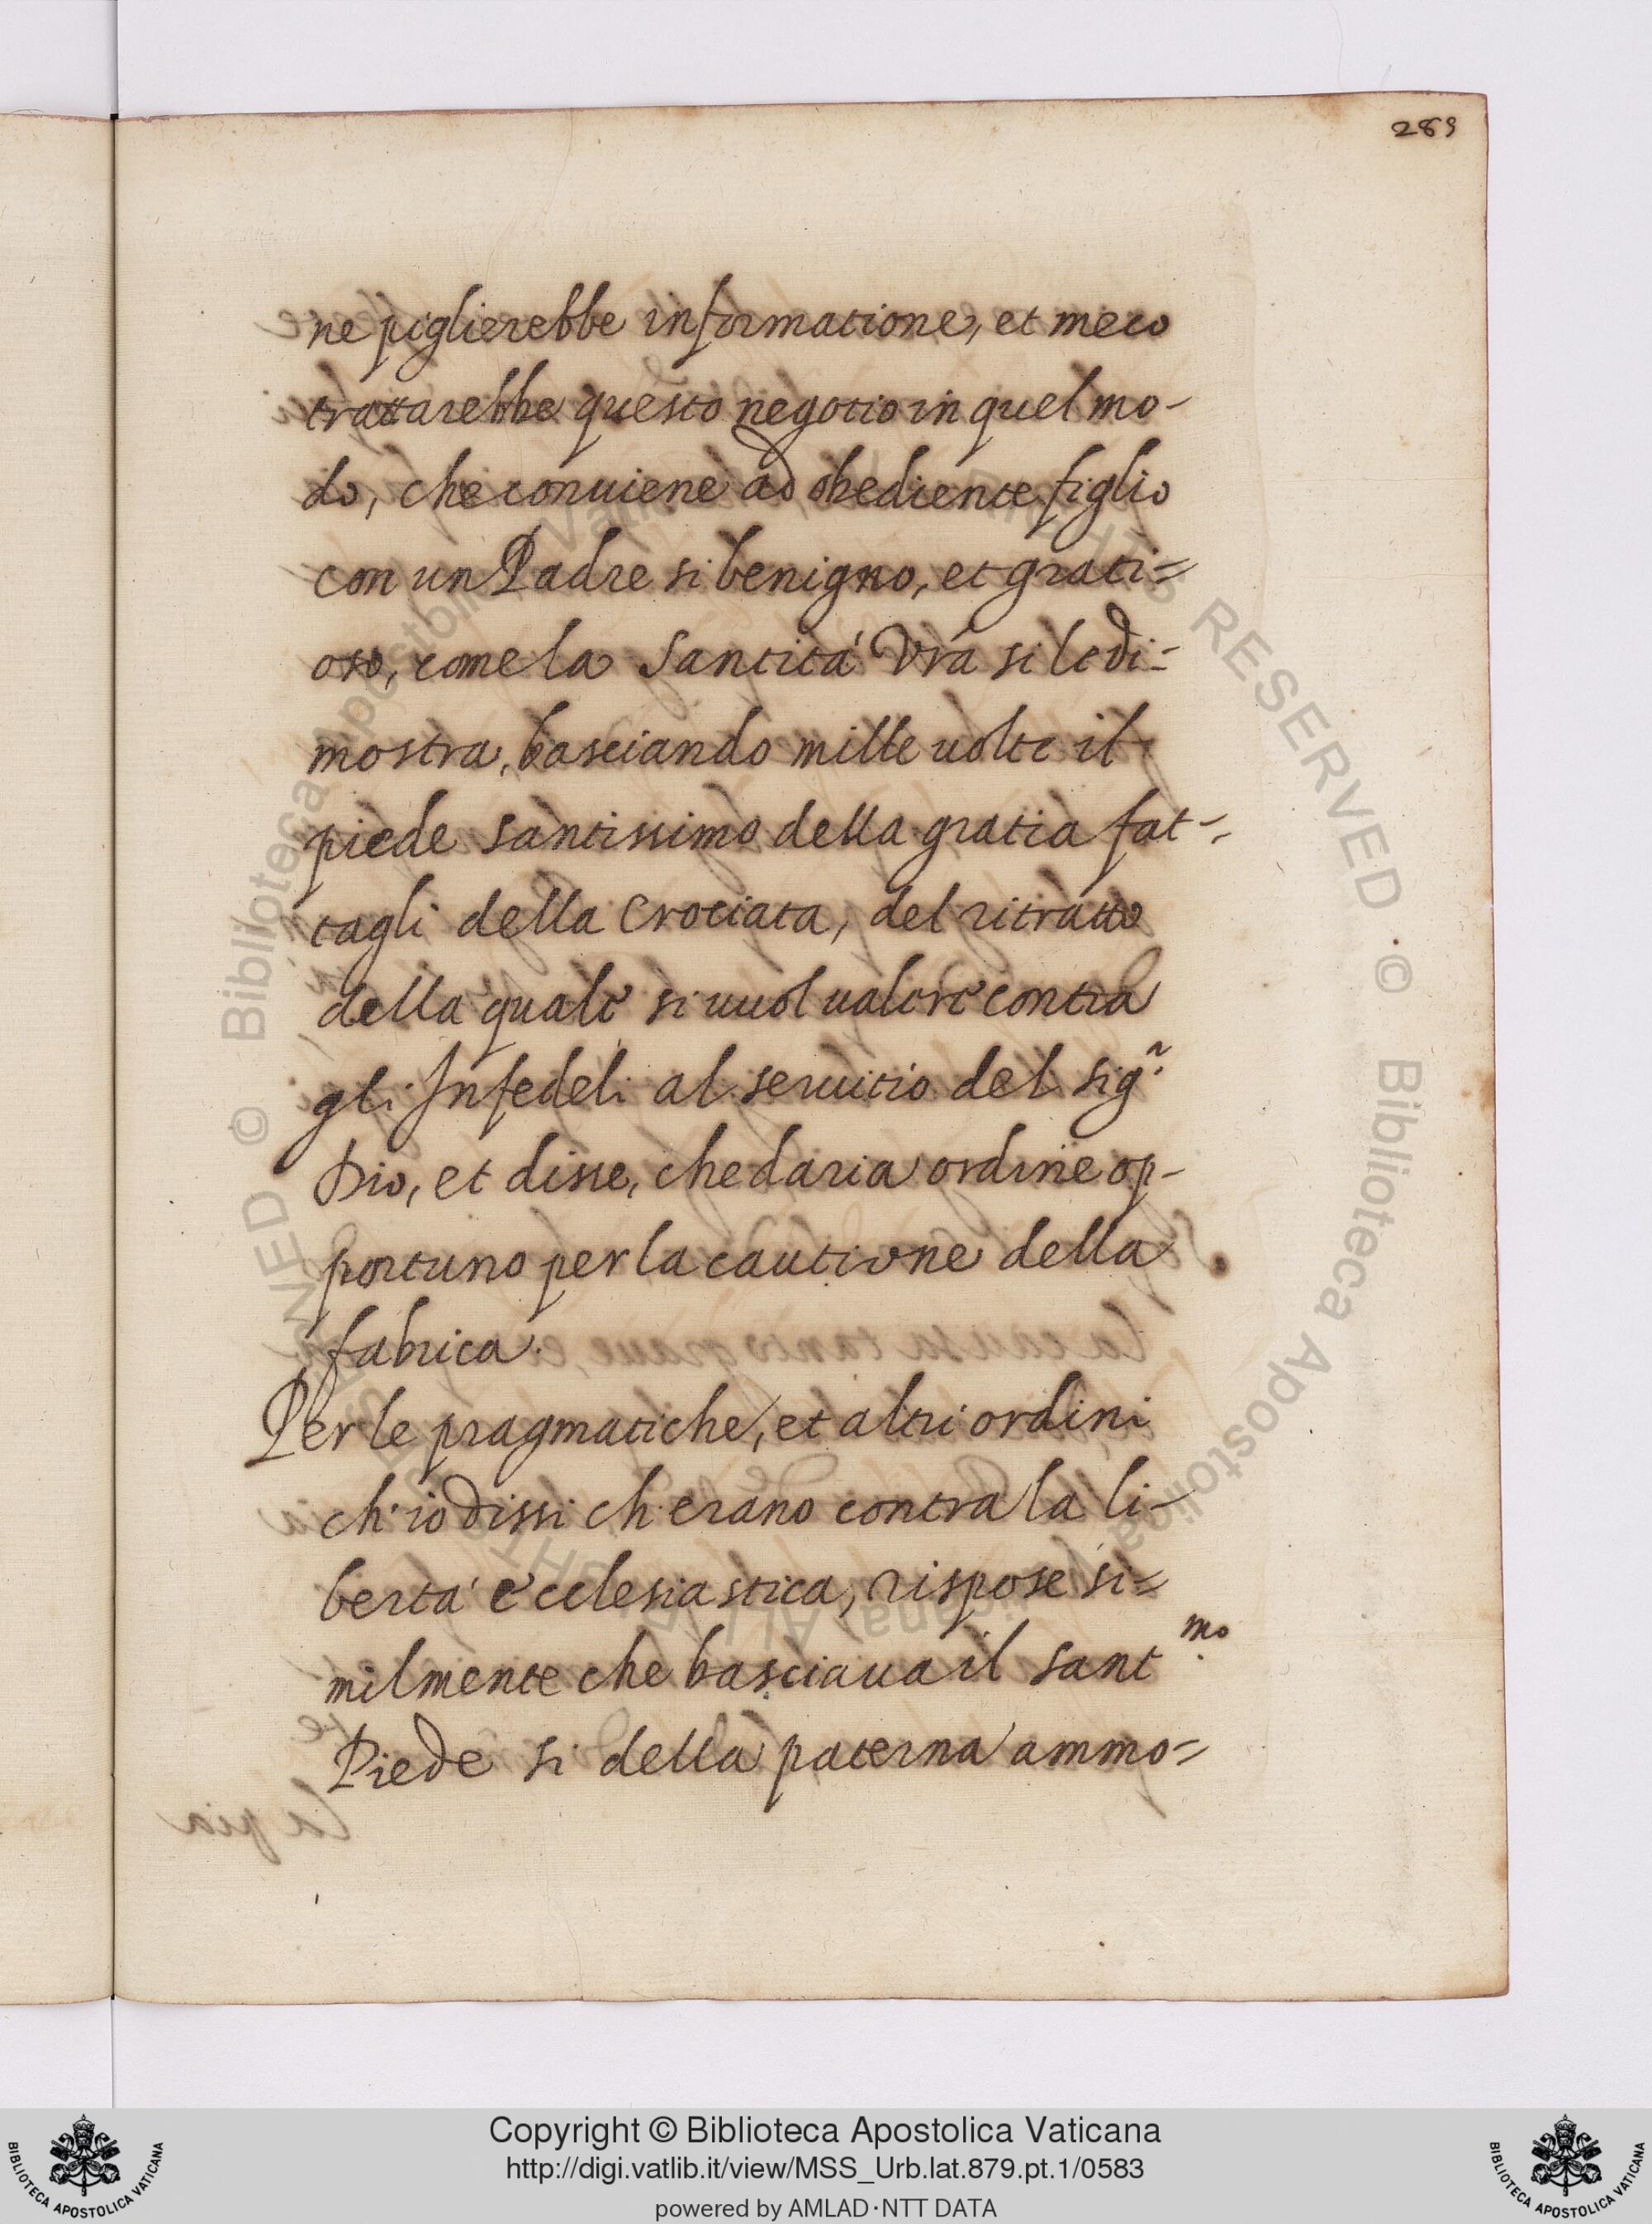 289
ne piglierebbe informatione, et meco
trattarebbe questo negotio in quel mo-
do, che conuiene ad obediente figlio
con un Padre si benigno, et grati=
oso, come la Santità Vrã si le di=
mostra, basciando mille uolte il
piede santissimo della gratia fat-
tagli della Crociata, del ritratto
della quale si uuol ualere contra
gli Infedeli al seruitio del Sig.r̃
Dio, et disse, che daria ordine op-
portuno per la cautione della
fabrica.
Per le pragmatiche, et altri ordini
ch'io dissi ch'erano contra la li-
bertà ecclesiastica, rispose si=
milmente che basciaua il Sant.mo
Piede si della paterna ammo=
© Biblioteca Apostolica Vaticana, ALL RIGHTS RESERVED · © Biblioteca Apostolica Vaticana, ALL RIGHTS RESERVED
Copyright © Biblioteca Apostolica Vaticana
http://digi.vatlib.it/view/MSS_Urb.lat.879.pt.1/0583
powered by AMLAD·NTT DATA
BIBLIOTECA APOSTOLICA VATICANA
BIBLIOTECA APOSTOLICA VATICANA